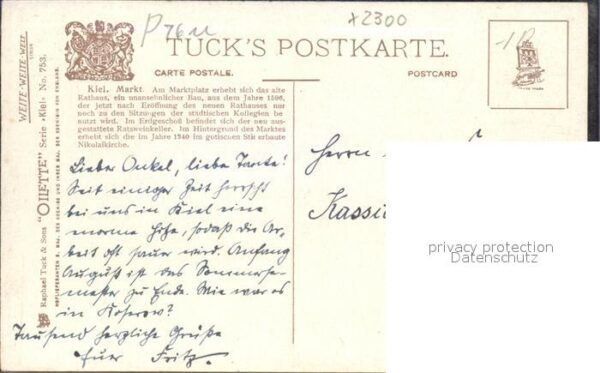 P 76 M
x2300
TUCK'S POSTKARTE.
CARTE POSTALE.
POSTCARD
Kiel. Markt. Am Marktplatz erhebt sich das alte
Rathaus, ein unansehnlicher Bau, aus dem Jahre 1506,
der jetzt nach Eröffnung des neuen Rathauses nur
noch zu den Sitzungen der städtischen Kollegien be
nutzt wird. Im Erdgeschoß befindet sich der neu aus-
gestattete Ratsweinkeller. Im Hintergrund des Marktes
erhebt sich die im Jahre 1240 im gotischen Stil erbaute
Nikolaikirche.
Lieber Onkel, liebe Tante!
Seit einiger Zeit herrscht
bei uns in Kiel eine
enorme Hitze, sodaß die Ar-
beit oft sauer wird. Anfang
August ist das Sommerse-
mester zu Ende. Wie war es
in Koserow?
Tausend herzliche Grüße
Euer Fritz.
Herrn
Kassi
privacy protection
Datenschutz
WEITE-WEITE-WELT
Raphael Tuck & Sons "OILETTE" Serie "Kiel" No. 753.